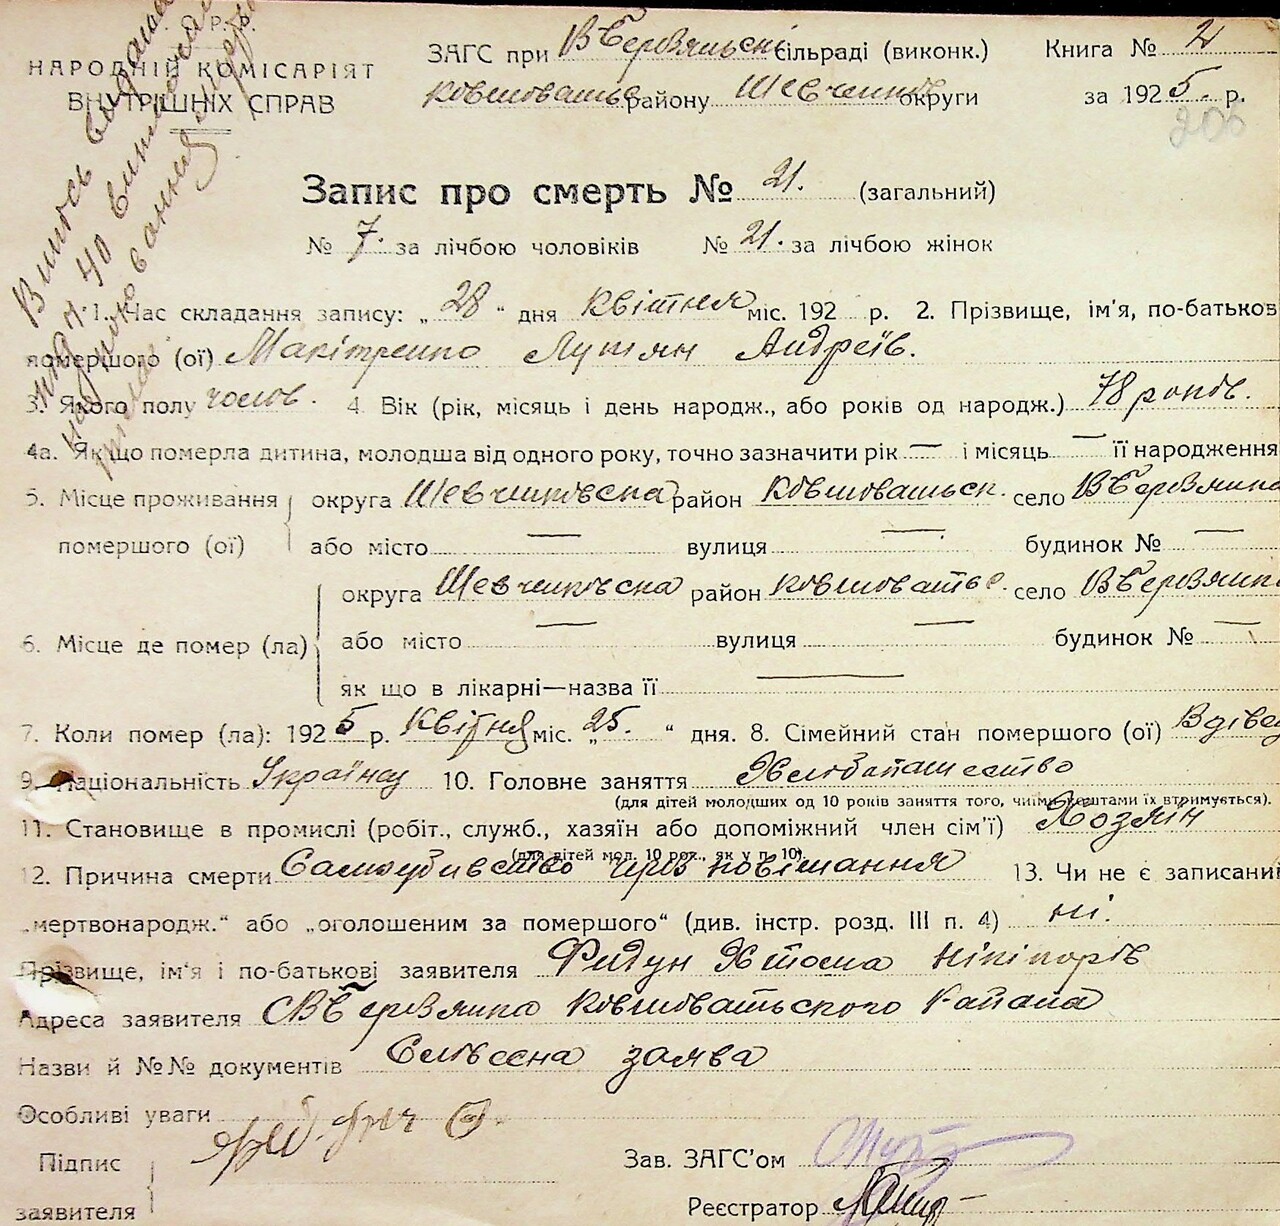 С. Р. Р.
НАРОДНІЙ КОМІСАРІЯТ
ВНУТРІШНІХ СПРАВ
ЗАГС при ВБервяльскі сільраді (виконк.) Книга № 2
Ковшовацьк району Шевченков округи за 1925. р.
206
Запис про смерть № 21. (загальний)
№ 7. за лічбою чоловіків № 21. за лічбою жінок
1. Час складання запису: „28“ дня Квітня міс. 192 р. 2. Прізвище, ім'я, по-батьков
помершого (ої) Макітренко Лутян Андреїв.
3. Якого полу чолов. 4. Вік (рік, місяць і день народж., або років од народж.) 78 років.
4а. Якщо померла дитина, молодша від одного року, точно зазначити рік — і місяць — її народження
5. Місце проживання помершого (ої) округа Шевченковска район Ковшовацьк. село
або місто — вулиця — будинок № —
6. Місце де помер (ла) округа Шевченковска район Ковшоватьс. село
або місто — вулиця — будинок № —
як що в лікарні—назва її —
7. Коли помер (ла): 1925 р. Квітня міс. „25.“ дня. 8. Сімейний стан помершого (ої) Вдівец
9. Національність Українец 10. Головне заняття Хлебопашество
(для дітей молодших од 10 років заняття того, чиїми коштами їх втримується).
11. Становище в промислі (робіт., служб., хазяїн або допоміжний член сім'ї) Хозяїн
(для дітей мол. 10 рок., як у п. 10)
12. Причина смерти Самоубивство через повішання 13. Чи не є записаний
„мертвонародж.“ або „оголошеним за помершого“ (див. інстр. розд. III п. 4) ні.
Прізвище, ім'я і по-батькові заявителя Хтома Нікіпорів
Адреса заявителя Ковшоватьского Району
Назви й №№ документів Словесна заява
Особливі уваги
Підпис заявителя
Зав. ЗАГС'ом
Реєстратор